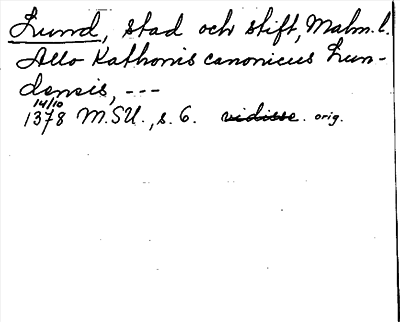 Lund, stad och stift, Malm. l.
Atto Kathonis canonicus Lun-
densis, ---
14/10
1378 M.SU., s. 6. vidisse. orig.